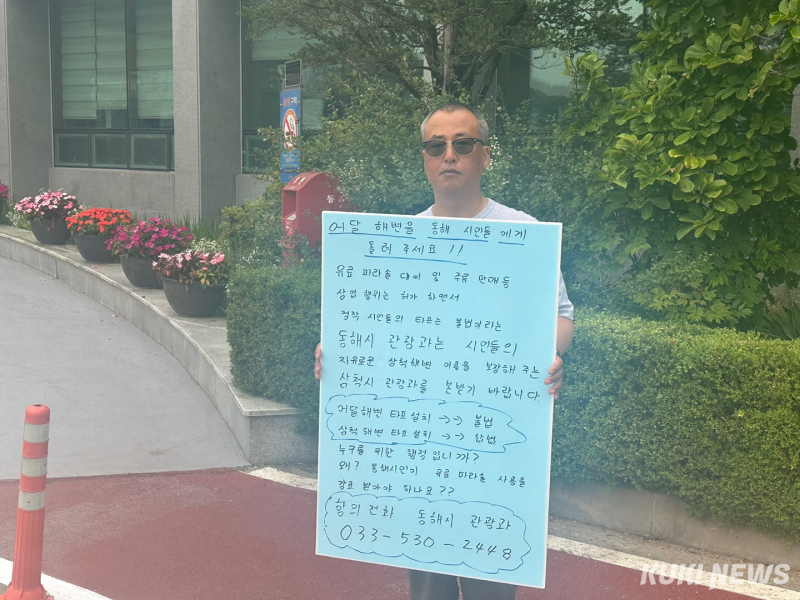 어달 해변을 동해 시민들에게
돌려 주세요!!
유료 파라솔 대여 및 주류 판매등
상업 행위는 허가 하면서
정작 시민들의 타프는 불법이라는
동해시 관광과는 시민들의
자유로운 삼척해변 이용을 보장해 주는
삼척시 관광과를 본받기 바랍니다.
어달해변 타프설치 →→ 불법
삼척해변 타프설치 →→ 합법
누구를 위한 행정입니까?
왜? 동해시민이 유료 파라솔 사용을
강요 받아야 하나요??
항의전화 동해시 관광과
033-530-2448
KUKI NEWS